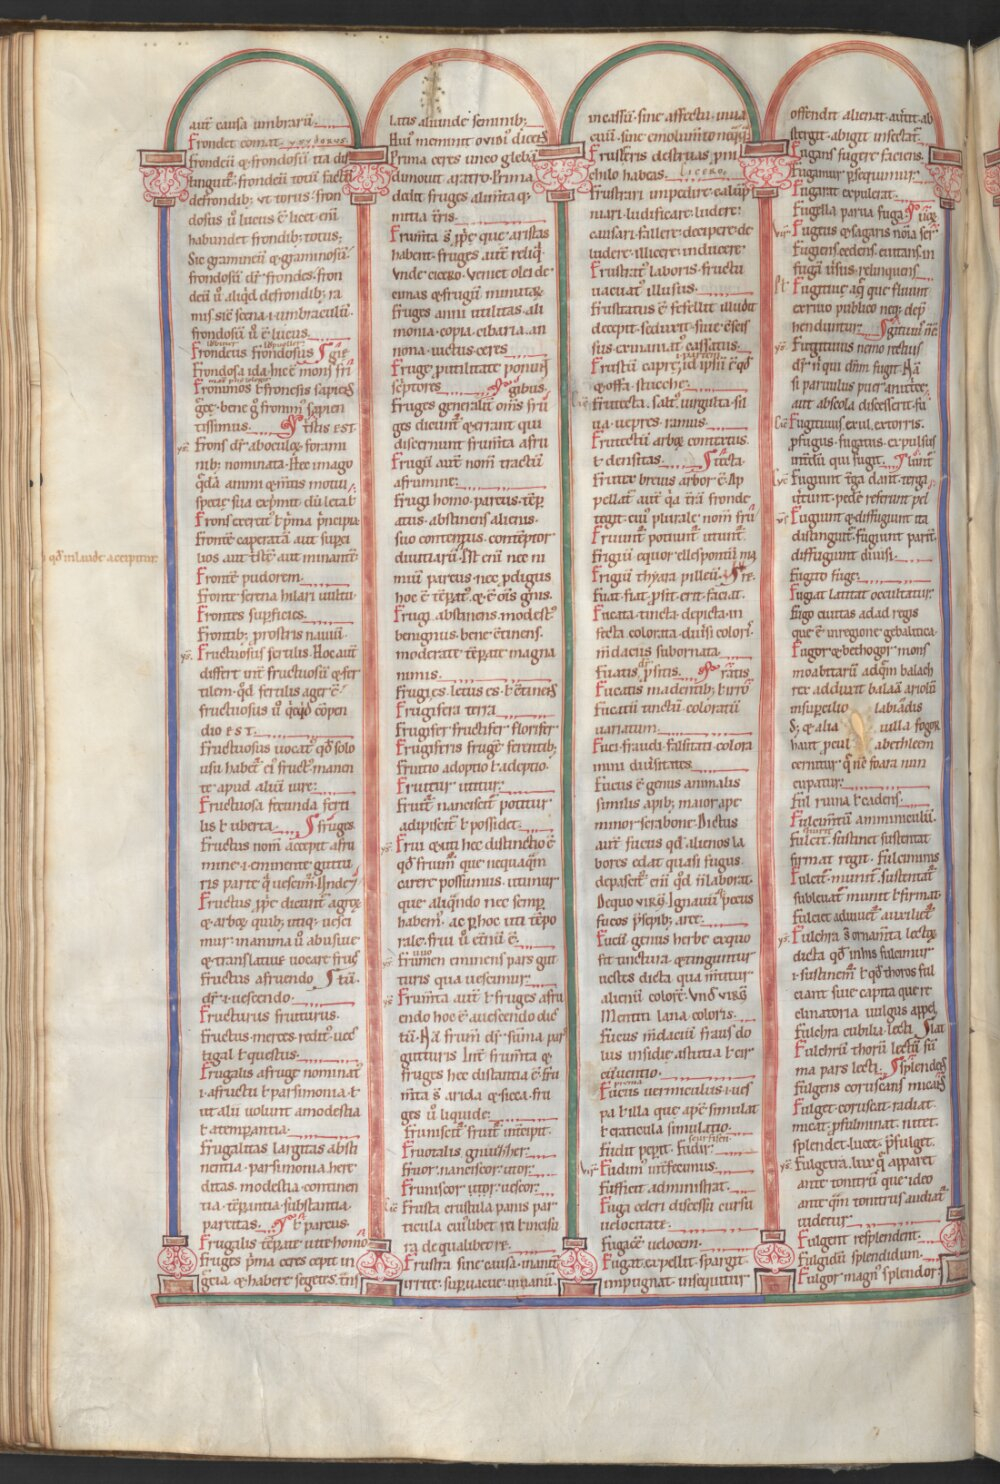 aut causa umbrarū.
Frondet comat. ysydorus.
frondeū & frondosū ita dis
tinguit᷑. frondeū totū factū
defrondib; ut torus. fron
dosus ū lucus ē licet eni
habundet frondib; totus;
Sic gramineū & graminosū.
frondosū dr̄ frondes. fron
deū ū aliqd defrondib; ra
mis sic scena .i. umbraculū.
frondosū ū ē lucus.
Frondeus frondosus
Frondosa ida. hic ē mons
Fronimos ł fronesis sapiens
gče. bene g̊ fronim̄ sapien
tissimus. Tristis est
Frons dr̄ aboculoꝝ forami
nib; nominata. Hec imago
q̄dā animi & m̄tis motuū
specie sua exp̄mit dū leta ł
Frons exercit᷑ ł p̄ma p̄ncipia
Frontē caperatā aut superci
lios aut tristē aut minantē
Frontē pudorem.
Fronte serena hilari uultu
Frontes sup̄ficies.
Frontib; prostris nauiū.
Fructuosus fertilis. Hoc aut̄
differt int̄ fructuosū & fer
tilem. qd̄ fertilis ager ē.
fructuosus ū q̄cqd̄ conpen
dio est.
Fructuosus uocat᷑ qd̄ solo
usu habet᷑ ei᷒ fruct᷒. manen
te apud aliū iure.
Fructuosa fecunda ferti
lis ł uberta. fruges
Fructus nom̄ accepit afru
mine .i. eminente guttu
ris parte q̄ uescim᷑. Inde
Fructus. pp̄e dicunt᷑ agroꝝ
& arboꝝ quib; utiq; uesci
mur. inanima ū abusiue
& translatiue uocare frug
fructus afruendo
dr̄ .i. uescendo.
Fructurus fruiturus.
Fructus merces. redit᷒. uec
tigal ł questus.
Frugalis afruge nominat᷑
.i. afructu ł parsimonia. ł
ut alii uolunt amodestia
ł atemp̄antia.
Frugalitas largitas absti
nentia. parsimonia. here
ditas. modestia. continen
tia. tēp̄antia. substantia.
parcitas. ł parcus.
Frugalis tēp̄ate uiue homo.
Fruges p̄ma ceres cepit in
grecia & habere segetes. ins
qd̄ inlaude accipitur.
latis aliunde seminib;
Hui᷒ meminit ouidi᷒ dicens
Prima ceres unco glebā
dimouit aratro. Prima
dedit fruges alimīta q;
mitia t̄ris.
Frum̄ta s̄ pp̄e que aristas
habent. fruges aut̄ reliq̄.
Vnde cicero. Veniet olei de
cimas & frugū minutaꝝ.
Fruges anni utilitas. ali
monia. copia. cibaria. an
nona. uictus. ceres
Fruge. p utilitate ponunt
sc̄ptores frugibus
Fruges generalit̄ oms̄ fru
ges dicunt᷑ & errant qui
discernunt frum̄ta afru
Frugū aut̄ nom̄ tractū
afrumine.
Frugi homo. parcus. tēp̄
atus. abstinens alienis.
suo contentus. contēptor
diuitiarū. Est enī nec ni
miū parcus. nec pdigus
hoc ē tēp̄at᷒. & ē om̄s gn̄is.
Frugi abstinens. modest᷒.
benignus. bene ɔtinens.
moderate tēp̄ate magna
nimis.
Frugi es. letus es. ł ɔtinens
Frugifera terra
Frugifer fructifer florifer
Frugiferis frugē ferentib;
Fruitio adoptio ł adeptio.
Fruitur utitur.
Fruit᷑ nanciscit᷑ potitur
adipiscit᷑ ł possidet.
Frui & uti hec distinctio ē
qd̄ fruim᷑ que nequaq̄m
carere possumus. utimur
que aliq̄ndo nec semp
habem᷒. ac p hoc uti tēpo
rale. frui ū etnū ē.
Frumen eminens pars gut
turis qua uescimur.
Frum̄ta aut̄ ł fruges afru
endo hoc ē auescendo dic
tū. Nā frum̄ dr̄ sum̄a pars
gutturis. Int̄ frum̄ta &
fruges hec distantia ē. fru
m̄ta s̄ arida & sicca. fru
ges ū liquide.
Fruniscit᷑ fruit᷑ incipit.
Fruotalis
Fruor. nanciscor. utor.
Fruniscor utor. uescor.
Frusta crustula panis par
ticula cuiuslibet rei ł incisu
ra de qualibet re.
Frustra sine causa. inanit̄
irrite. supuacue. inanū.
incassū. sine affectu. uana
cuū. sine emolum̄to
Frustreris destruas. pni
chilo habeas. Cicero.
Frustrari impedire. calūp
niari. ludificare. ludere.
causari. fallere. decipere. de
ludere. illicere. inducere.
Frustrat᷒ laboris. fructu
uacuat᷒ illusus.
Frustratus ē fefellit illudit
decepit. seduxit. siue ē seis
sus. exinanit᷒. cassatus.
Frustū capre. id ipsū ē qd̄
& offa. stuccho.
Frutecta. salt᷒. uirgulta. sil
ua. uepres. ramus.
Frutectū arboꝝ contextus.
ł densitas.
Frutex breuis arbor ē. Ap
pellat᷒ aut̄ qa t̄rā fronde
tegit. cui᷒ plurale nom̄ fru
Fruunt᷑ potiunt᷑ utunt᷑.
Frigiū equor ellesponciū ma
Frigiū thyara pilleū.
Fuat. fiat. p̄sit. erit. faciat.
Fucata. tincta. depicta. in
fecta. colorata. diuisi coloris.
mdacius subornata.
Fuatis p̄sitis.
Fucatis madentib; ł irro
Fucatū tinctū coloratū
uariatum.
Fuci. fraudi. falsitati. colora
mini. diuisitates.
Fucus ē genus animalis
similis apib; maior ape
minor scrabone. Dictus
aut̄ fucus qd̄ alienos la
bores edat quasi fugus.
depascit᷑ enī qd̄ n̄ laborat.
Dequo virgł. Ignauū pecus
fucos p̄sepib; arcet.
Fucū genus herbe ex quo
fit tinctura. & tinguntur
uestes dicta qua m̄titur
alienū colorē. vnd̄ virgł
Mentiri lana colores.
Fucus m̄dacium fraus do
lus insidie astutia ł cir
cūuentio.
Fucus uermiculus .i. ues
pa ł illa que apē simulat
ł craticula simulatio.
Fudit pepit. fudit.
Fudim᷒ int̄fecimus.
Fuffecit administrat.
Fuga celeri discessu cursu
uelocitate.
Fugace uelocem.
Fugat. expellit. spargit.
impugnat. insequitur
offendit. alienat. auertit. ab
stergit. abigit. insectat᷑.
Fugans fugere faciens.
Fugamur psequimur.
Fugarat expulerat.
Fugella parua fuga.
Fugeus & sagaris noīa ser
Fugiens. cedens. euitans. in
fugā uersus. relinquens
Fugitiue aq̄ que fluunt
ex riuo publico neq; dep̄
henduntur. fugitiui n̄ē
Fugitiuus nemo rectius
dr̄ n̄ qui dn̄m fugit. Nā
si paruulus puer anutrice
aut abscola discesserit. fu
Fugitiuus exul. extorris.
pfugus. fugatus. expulsus
int̄dū qui fugit.
Fugiunt t̄ga dant. terga
utunt. pede referunt ped
Fugiunt & diffugiunt ita
distinguit᷑. fugiunt pariter.
diffugiunt diuisi.
Fugito fuge.
Fugiat latitat occultatur
Figo ciuitas adad regis
que ē inregione gebaltica.
Fugor & bethogor mons
moabitarū adqm̄ balach
rex adduxit balaā ariolū
insupcilio labiadis
S; & alia uilla fogor
haut pcul abethleem
cernitur
cupatur.
Ful ruina ł cadens.
Fulcim̄tū amminiculū.
Fulcit. sustinet sustentat
firmat regit. fulciminis
Fulcit᷑. munit᷑. sustentat᷑
subleuat᷑ munit ł firmat.
Fulciet adiuuet᷑ auxiliet᷑
Fulchra s̄ ornam̄ta lectoꝝ
dicta qd̄ inhis fulcimur
.i. sustinem᷑ ł qd̄ thoros ful
ciant siue capita que re
clinatoria uulgus appel
Fulchra cubilia. lecti.
Fulchrū thorū lectū sū
ma pars lecti. splendens
Fulgens coruscans micans
Fulget. coruscat. radiat.
micat. pfulminat. nitet.
splendet. lucet. p̄fulget.
Fulgetra. lux q̄ apparet
ante tonitrū que ideo
ante qm̄ tonitrus audiat᷑
uidetur
Fulgent resplendent.
Fulgidū splendidum.
Fulgor magn᷒ splendor.